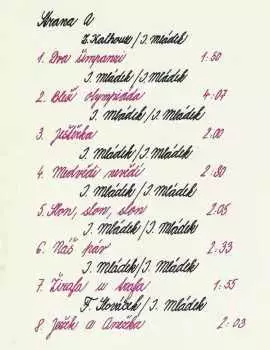 Strana A
Z. Kalhous / I. Mládek
1. Dva šimpanzi 1:50
I. Mládek / I. Mládek
2. Bleší olympiáda 4:07
I. Mládek / I. Mládek
3. Ještěrka 2:00
I. Mládek / I. Mládek
4. Medvědi nevědí 2:30
I. Mládek / I. Mládek
5. Slon, slon, slon 2:05
I. Mládek / I. Mládek
6. Náš páv 2:33
I. Mládek / I. Mládek
7. Žirafa u trafa 1:55
F. Slováček / I. Mládek
8. Ježek a Anežka 2:03